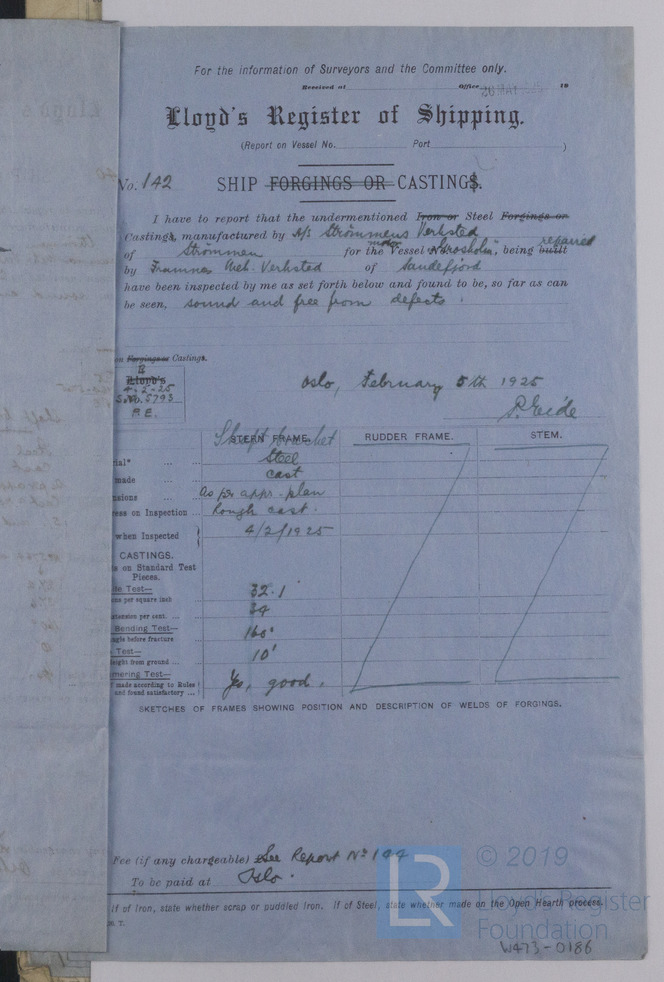 For the information of Surveyors and the Committee only.
Received at Office 26 MAY 1925 19
Lloyd's Register of Shipping.
(Report on Vessel No. Port )
No. 142 SHIP FORGINGS OR CASTINGS.
I have to report that the undermentioned Iron or Steel Forgings or
Castings, manufactured by A/S Strömmens Verksted
of Strömmen for the motor Vessel being built repaired
by Framnes Mek. Verksted of Sandefjord
have been inspected by me as set forth below and found to be, so far as can
be seen, sound and free from defects.
on Forgings or Castings.
Lloyd's
4-2-25
S.No. 5793
P.E.
Oslo, February 5th 1925
P. Eide
Shaft bracket
STERN FRAME. RUDDER FRAME. STEM.
ial* Steel
made cast
nsions As per appr. plan
ess on Inspection Rough cast.
when Inspected 4/2/1925
CASTINGS.
ts on Standard Test
Pieces.
le Test—
ons per square inch 32.1
xtension per cent. 34
Bending Test—
ngle before fracture 160°
Test—
eight from ground 10'
mering Test—
made according to Rules
and found satisfactory Yes, good.
SKETCHES OF FRAMES SHOWING POSITION AND DESCRIPTION OF WELDS OF FORGINGS.
Fee (if any chargeable) See Report No 144
To be paid at Oslo.
If of Iron, state whether scrap or puddled Iron. If of Steel, state whether made on the Open Hearth process.
T.
LR
© 2019
Lloyd's Register
Foundation
W473-0186